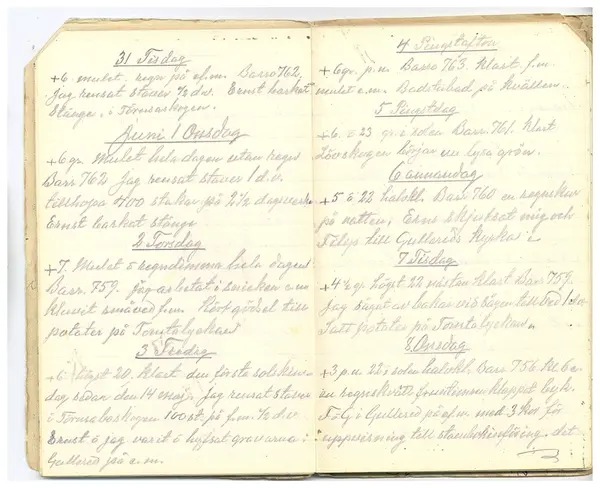 31 Tisdag
+6 mulet, regn på e.m. Baro 762.
Jag rensat staver ½ d.v. Ernst barkat
stänge. i Törnsaskogen.
Juni 1 Onsdag
+6 gr. Mulet hela dagen utan regn
Baro 762 Jag rensat staver 1 d.v.
tillhopa 400 stakar på 2½ dagsverke
Ernst barkat stänge
2 Torsdag
+7. Mulet o regndimma hela dagen
Baro. 759. jag arbetat i snickeren o
kluvit småved f.m. Kört gödsel till
potater på Tomtalyckan
3 Fredag
+6 högst 20. klart den första solsken-
dag sedan den 14 maj. Jag rensat staver
i Törnsaboskogen 100 st på f.m. ½ d.v
Ernst o jag varit o hyfsat gravarna i
Gullered på e.m.
4 Pingstafton
+6 gr. p.n. Baro 763 klart f.m.
mulet e.m. Badat på kvällen.
5 Pingstdag
+6. o 23 gr i solen Baro 761. Klart
Lövskogen börjar nu lysa grön.
6 annandag
+5 o 22 halvkl. Baro 760 en regnskur
på natten, Erne skjutsat mig och
till Gullereds Kyrka
7 Tisdag
+4½ gr. högst 22 nästan klart Baro 759.
Jag sågat av bakar vid sågen till ved 1 d.v
Satt potater på Tomtalyckan.
8 Onsdag
+3 p.n. 22 i solen halvkl. Baro 756 Kl 6 em
en regnskvätt
i Gullered på e.m. med 3 kor för
uppvisning till stambokföring. det